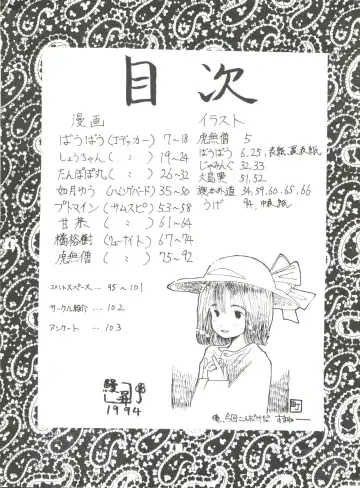 目次
漫画
ばうばう(Jデッカー) 7~18
しょうちゃん( 〃 ) 19~24
たんぽぽ丸( 〃 ) 26~32
如月ゆう(ハミングバード) 35~50
プトマイン(サムスピ) 53~58
甘茶( 〃 ) 61~64
橘裕樹(リューナイト) 67~74
虎無僧( 〃 ) 75~92
コメントスペース… 95~101
サークル紹介 … 102
アンケート … 103
イラスト
虎無僧 5
ばうばう 6,25,表紙,裏表紙
じゃみんぐ 32,33
大島業 51,52
旗本外道 34,59,60,65,66
うげ 94,中表紙
1994
俺、今回こんだけだ すまねー